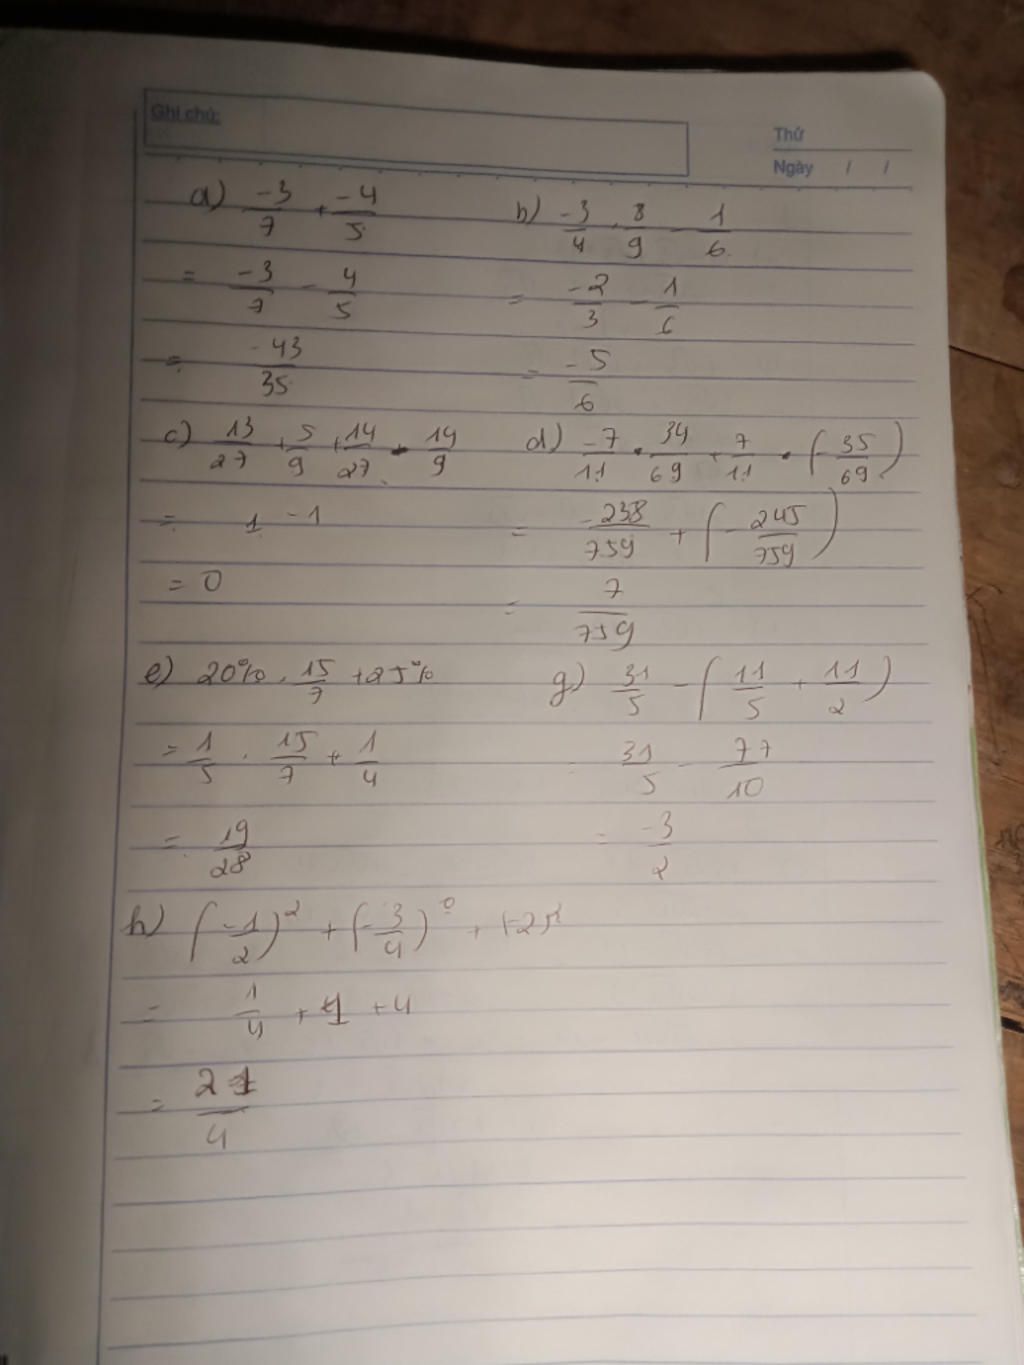 Ghi chú:
Thứ
Ngày / /
a) -3/7 + -4/5
= -3/7 - 4/5
= -43/35
b) -3/4 . 8/9 - 1/6
= -2/3 - 1/6
= -5/6
c) 13/27 + 5/9 + 14/27 - 14/9
= 1 - 1
= 0
d) -7/11 . 34/69 + 7/11 . (-35/69)
= -238/759 + (-245/759)
= 7/759
e) 20% . 15/7 + 25%
= 1/5 . 15/7 + 1/4
= 19/28
g) 31/5 - (11/5 + 11/2)
= 31/5 - 77/10
= -3/2
h) (-1/2)² + (-3/4)⁰ + (-2)²
= 1/4 + 1 + 4
= 21/4